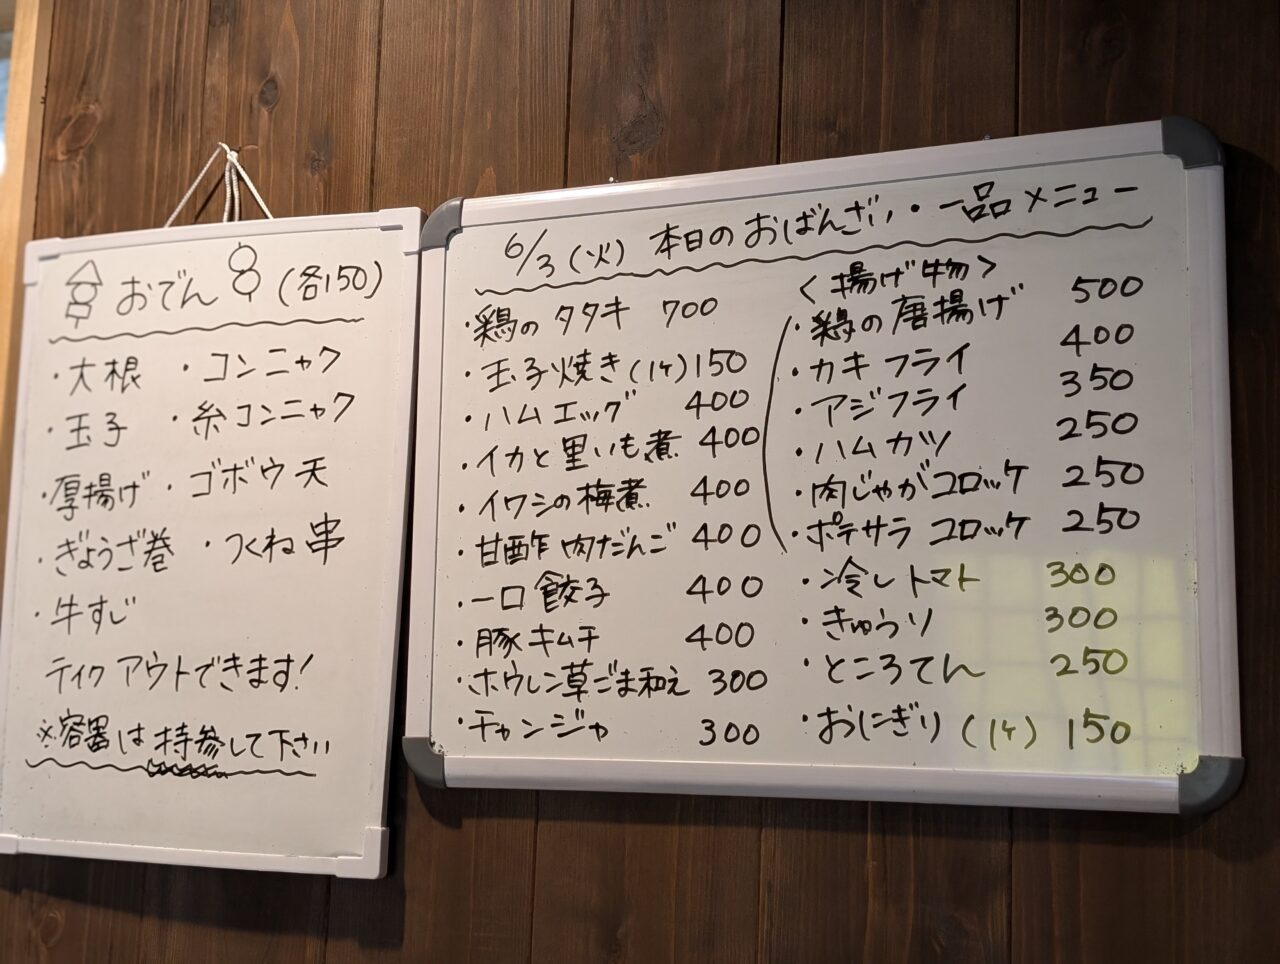 おでん (各150)
・大根 ・コンニャク
・玉子 ・糸コンニャク
・厚揚げ ・ゴボウ天
・ぎょうざ巻 ・つくね串
・牛すじ
テイクアウトできます!
※容器は持参して下さい
6/3(火) 本日のおばんざい・一品メニュー
・鶏のタタキ 700
・玉子焼き(1ケ)150
・ハムエッグ 400
・イカと里いも煮 400
・イワシの梅煮 400
・甘酢肉だんご 400
・一口餃子 400
・豚キムチ 400
・ホウレン草ごま和え 300
・チャンジャ 300
<揚げ物>
・鶏の唐揚げ 500
・カキフライ 400
・アジフライ 350
・ハムカツ 250
・肉じゃがコロッケ 250
・ポテサラコロッケ 250
・冷しトマト 300
・きゅうり 300
・ところてん 250
・おにぎり(1ケ) 150